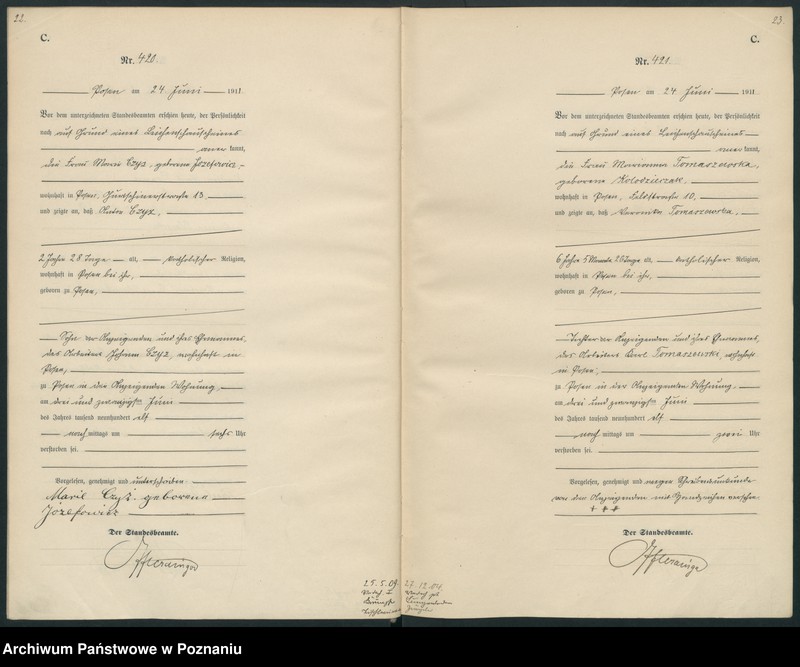 22.
C.
Nr. 420.
Posen am 24 Juni 1911
Vor dem unterzeichneten Standesbeamten erschien heute, der Persönlichkeit
nach auf Grund eines Leichenschauscheines
anerkannt,
die Frau Marie Czyz, geborene Józefowicz,
wohnhaft in Posen, 13
und zeigte an, daß Czyz,
2 Jahre 28 Tage alt, katholischer Religion,
wohnhaft in Posen bei ihr,
geboren zu Posen,
Sohn der Anzeigenden und ihres Ehemannes,
des Arbeiters Johann Czyz, wohnhaft in
Posen,
zu Posen in der Anzeigenden Wohnung,
am drei und zwanzigsten Juni
des Jahres tausend neunhundert elf
nachmittags um sechs Uhr
verstorben sei.
Vorgelesen, genehmigt und unterschrieben
Marie Czyż geborene
Józefowicz
Der Standesbeamte.
25.5.09.
23.
C.
Nr. 421.
Posen am 24 Juni 1911.
Vor dem unterzeichneten Standesbeamten erschien heute, der Persönlichkeit
nach auf Grund eines Leichenschauscheines
anerkannt,
die Frau Marianna Tomaszewska,
geborene Kolodzieczak,
wohnhaft in Posen, 10,
und zeigte an, daß Veronika Tomaszewska,
6 Jahre 5 Monate 26 Tage alt, katholischer Religion,
wohnhaft in Posen bei ihr,
geboren zu Posen,
Tochter der Anzeigenden und ihres Ehemannes,
des Arbeiters Karl Tomaszewski, wohnhaft
in Posen,
zu Posen in der Anzeigenden Wohnung,
am drei und zwanzigsten Juni
des Jahres tausend neunhundert elf
nachmittags um zwei Uhr
verstorben sei.
Vorgelesen, genehmigt und wegen Schreibensunkunde
von der Anzeigenden mit Handzeichen versehen
+ + +
Der Standesbeamte.
27.12.04.
Archiwum Państwowe w Poznaniu